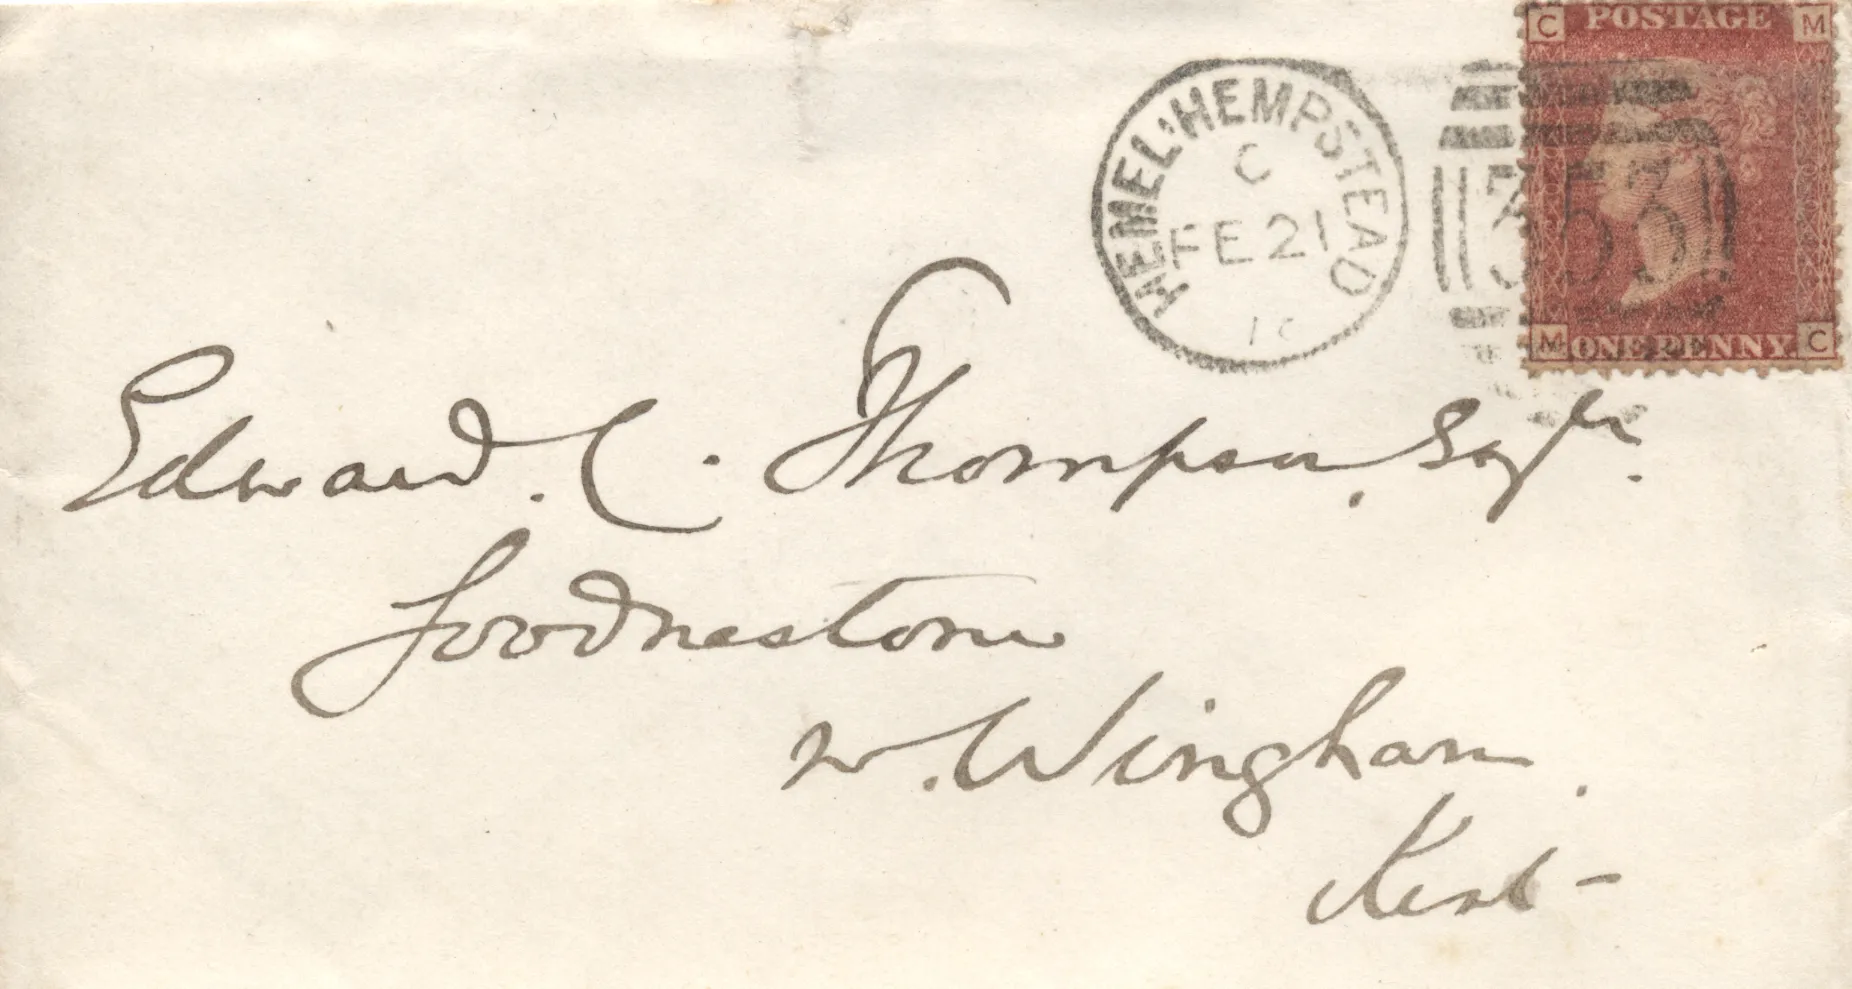 C POSTAGE M
HEMEL:HEMPSTEAD
C
FE 21
353
M ONE PENNY. C
Edward. C. Thompson. Esqr.
Goodnestone
nr. Wingham.
Kent-